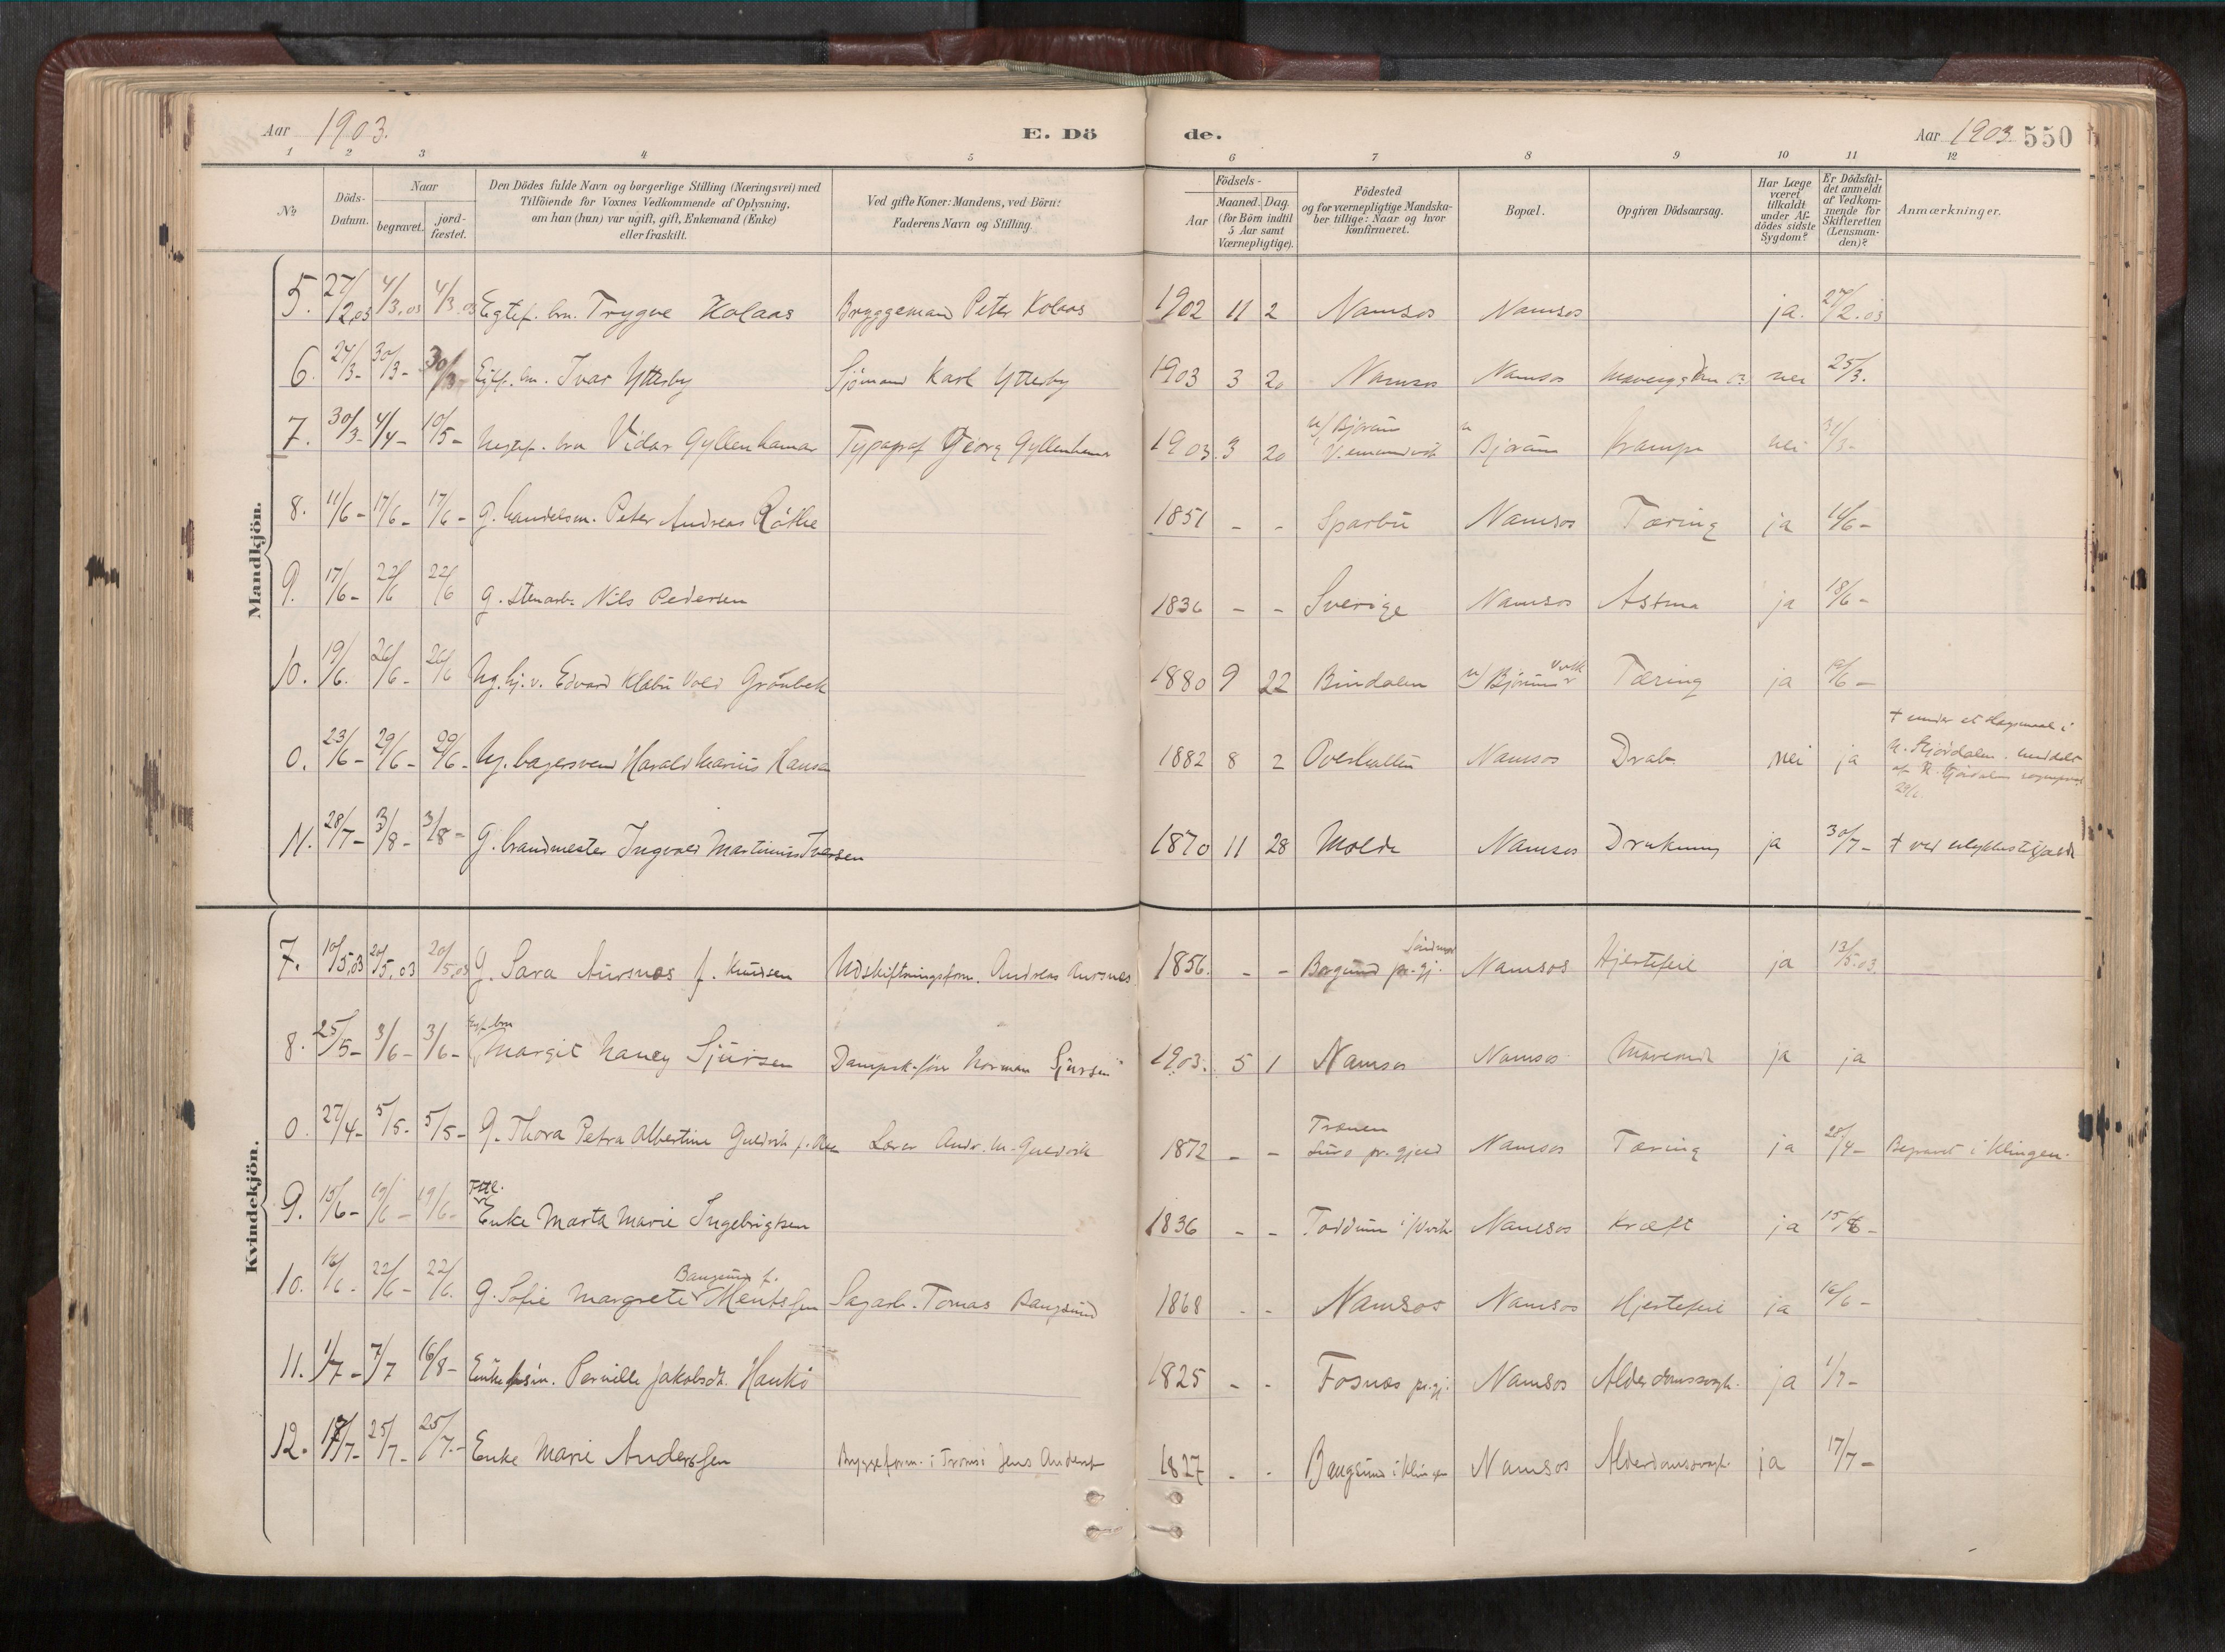 Aar 1903. E. Dö de. Aar 1903. 550
1 2 3 4 5 6 7 8 9 10 11 12
No
Döds-Datum.
Naar begravet. jordfæstet.
Den Dödes fulde Navn og borgerlige Stilling (Næringsvei) med Tilföiende for Voxnes Vedkommende af Oplysning, om han (hun) var ugift, gift, Enkemand (Enke) eller fraskilt.
Ved gifte Koner: Mandens, ved Börn: Faderens Navn og Stilling.
Födsels-
Aar Maaned. Dag. (for Börn indtil 5 Aar samt Værnepligtige).
Födested og for værnepligtige Mandskaber tillige: Naar og hvor konfirmeret.
Bopæl.
Opgiven Dödsaarsag.
Har Læge været tilkaldt under Afdödes sidste Sygdom?
Er Dödsfaldet anmeldt af Vedkommende for Skifteretten (Lensmanden)?
Anmærkninger.
Mandkjön.
5. 27/2.03 4/3.03 4/3.03 Egtef. brn. Trygve Kolaas Bryggemand Peter Kolaas 1902 11 2 Namsos Namsos ja. 27/2.03
6. 24/3- 30/3- 30/3- Egtf. brn. Ivar Ytterby Sjömand Karl Ytterby 1903 3 20 Namsos Namsos nei 25/3.
7. 30/3- 4/4- 10/5- Uegtef. brn Vidar Gyllenhamar Typograf Georg Gyllenhamar 1903. 3 20 Bjorum Bjorum krampe nei 31/3-
8. 11/6- 17/6- 17/6- G. handelsm. Peter Andreas Röthe 1851 - - Sparbu Namsos Tæring ja 11/6-
9. 17/6- 22/6 22/6 G. stenarb. Nils Pedersen 1836 - - Sverige Namsos Astma ja 18/6-
10. 19/6. 26/6- 26/6 Ug. hj. v. Edvard Klabu Vold Grönbek 1880 9 22 Bindalen Bjorum Tæring ja 19/6-
0. 23/6- 29/6- 29/6- Ug. bagersvend Harald Marius Hansen 1882 8 2 Overhallen Namsos Drab. nei ja † under et slagsmaal i
N. Stjördalen. meddelt
af N. Stjördalen sogneprest
29/6.
11. 28/7- 3/8- 3/8- G. brandmester Ingvald Martinius Iversen 1870 11 28 Molde Namsos Drukning ja 30/7- † ved ulykkestilfælde
Kvindekjön.
7. 10/5.03 20/5.03 20/5.03 G. Sara Aursnes f. Knudsen Udskiftningsform. Andreas Aursnes 1856. - - Borgund pr.gj. Söndmør Namsos Hjertefeil ja 13/5.03.
8. 25/5- 3/6- 3/6- Egtf. brn Margit Nancy Sjursen Dampsk.före Norman Sjursen 1903. 5 1 Namsos Namsos ja ja
0. 27/4- 5/5- 5/5- G. Thora Petra Albertine Guldvik f. Lærer Andr. M. Guldvik 1872 - - Trænen
Lurö pr.gjeld Namsos Tæring ja 28/4- Begravet i Klingen.
9. 15/6- 19/6- 19/6- Fttl.
Enke Marta Marie Ingebrigtsen 1836 - - Namsos Kræft ja 15/6-
10. 16/6- 22/6- 22/6. G. Sofie Margrete Bangsund f. Mentsen Sagarb. Tomas Bangsund 1868 - - Namsos Namsos Hjertefeil ja 16/6-
11. 1/7- 7/7 16/8- Enke Pernille Jakobsdt. Haukö 1825 - - Fosnæs pr.gj. Namsos Alderdomssvagh. ja 1/7-
12. 17/7- 25/7- 25/7.- Enke Marie Anderssen Bryggeform. i Tromsö Jens Anders 1827 - - Bangsund i Klingen Namsos Alderdomssvagh. ja 17/7-